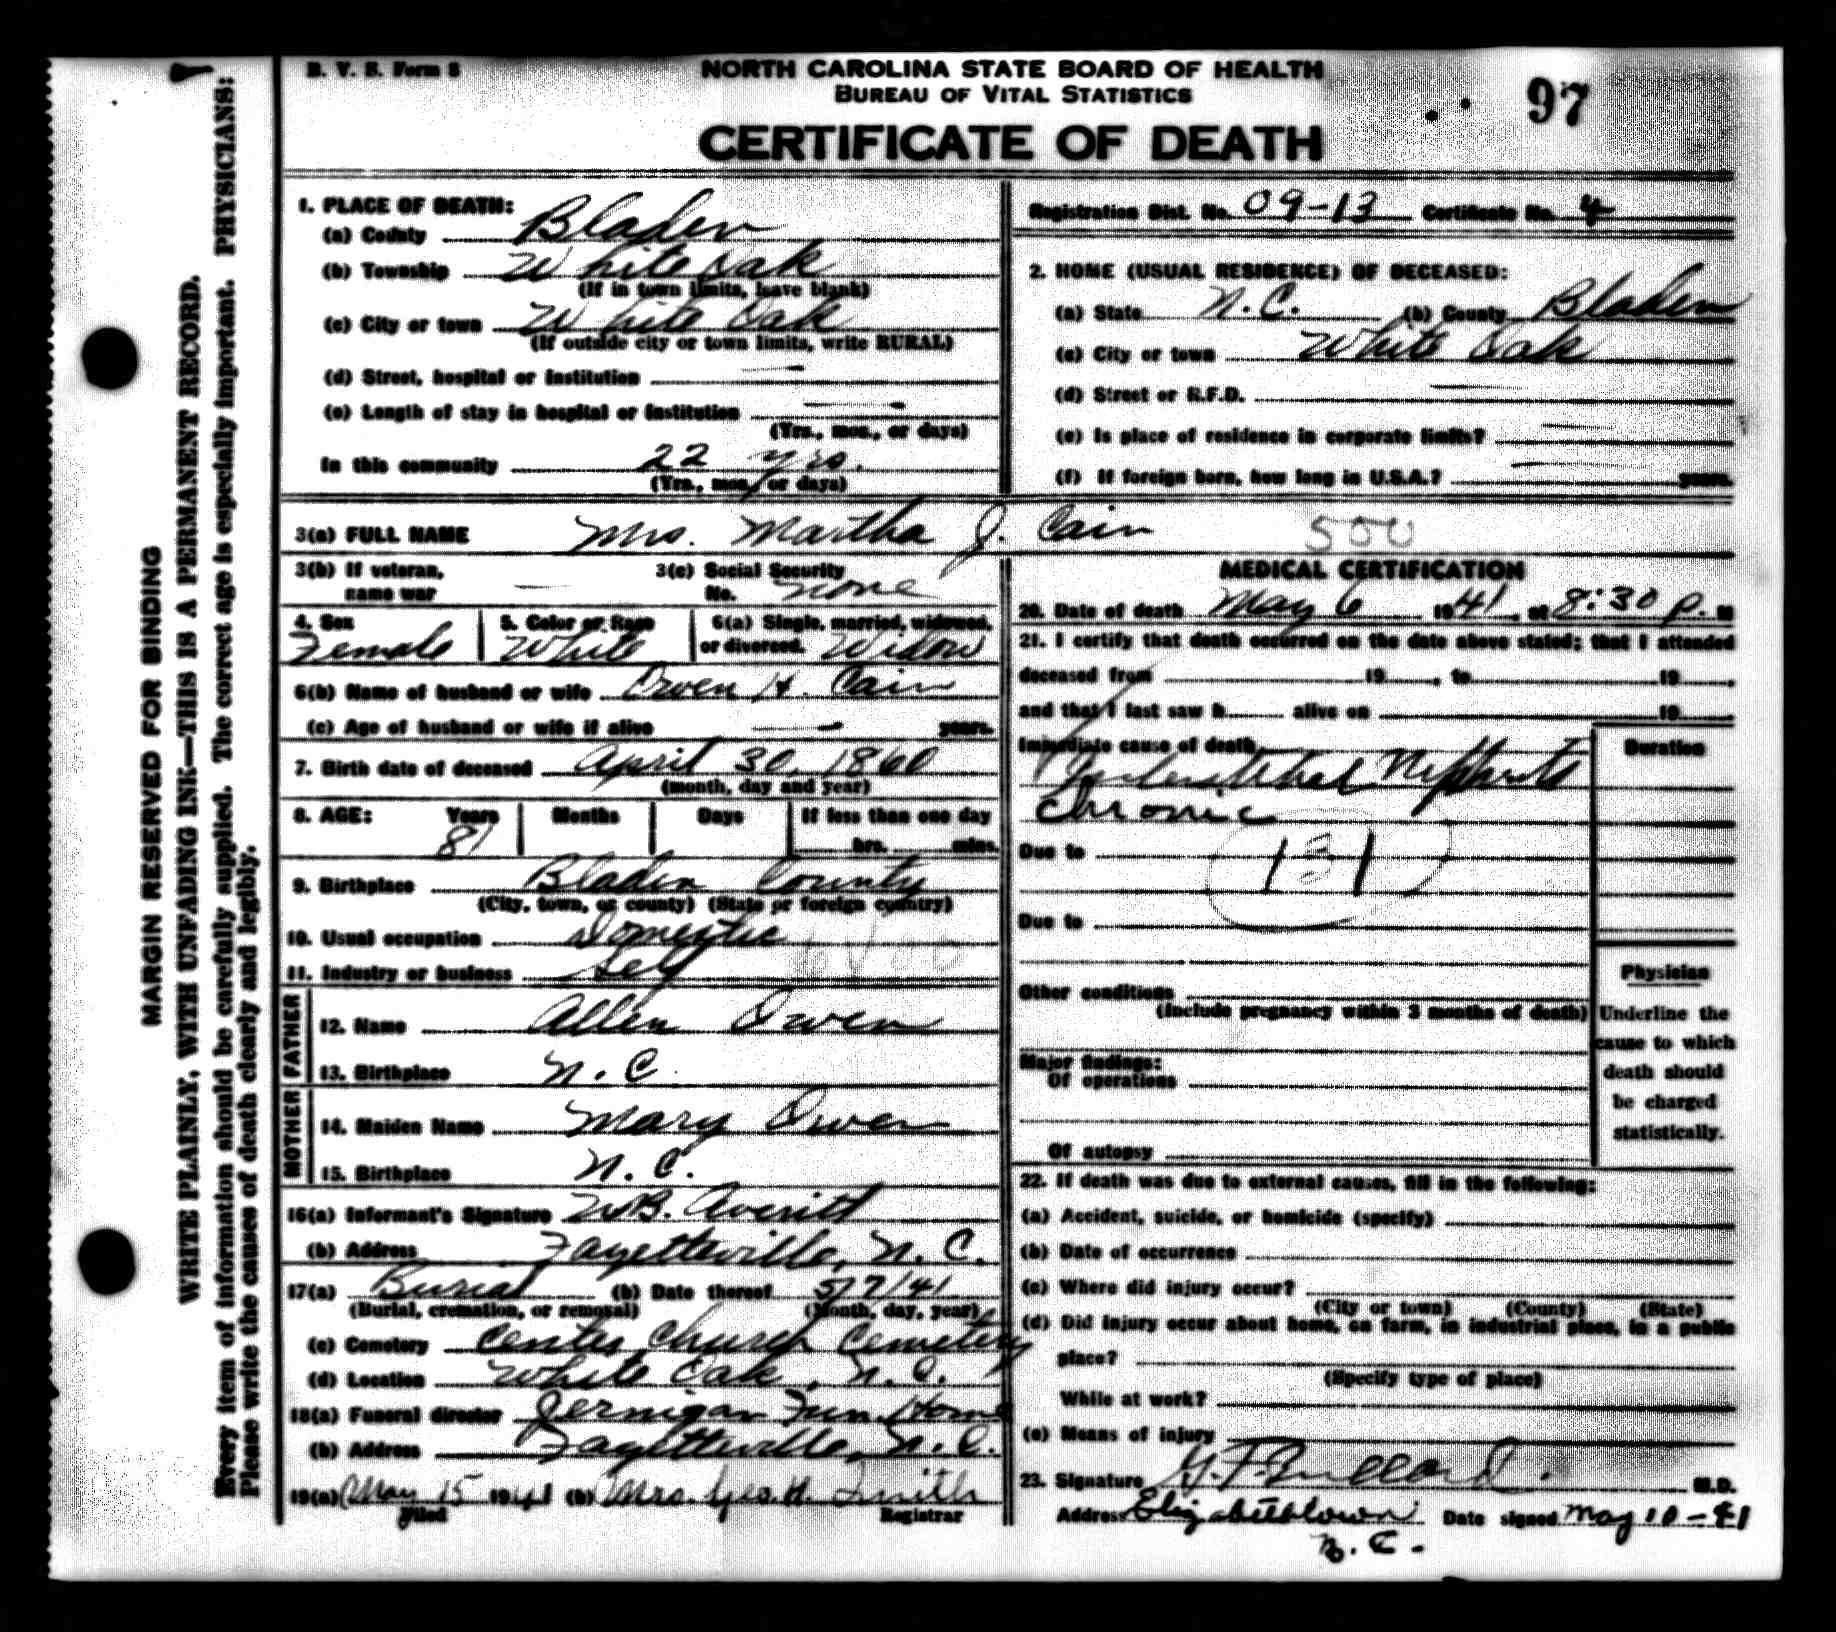 B. V. S. Form 8
NORTH CAROLINA STATE BOARD OF HEALTH
BUREAU OF VITAL STATISTICS
CERTIFICATE OF DEATH
97
MARGIN RESERVED FOR BINDING
WRITE PLAINLY, WITH UNFADING INK—THIS IS A PERMANENT RECORD.
Every item of information should be carefully supplied. The correct age is especially important. PHYSICIANS:
Please write the causes of death clearly and legibly.
1. PLACE OF DEATH:
(a) County Bladen
(b) Township White Oak
(If in town limits, leave blank)
(c) City or town White Oak
(If outside city or town limits, write RURAL)
(d) Street, hospital or institution —
(e) Length of stay in hospital or institution —
(Yrs., mon., or days)
In this community 22 yrs.
(Yrs., mon., or days)
Registration Dist. No. 09-13 Certificate No. 4
2. HOME (USUAL RESIDENCE) OF DECEASED:
(a) State N.C. (b) County Bladen
(c) City or town White Oak
(d) Street or R.F.D. —
(e) Is place of residence in corporate limits? —
(f) If foreign born, how long in U.S.A.? — years.
3(a) FULL NAME Mrs. Martha J. Cain 500
3(b) If veteran, name war —
3(c) Social Security No. none
4. Sex Female
5. Color or Race White
6(a) Single, married, widowed, or divorced. Widow
6(b) Name of husband or wife Owen H. Cain
(c) Age of husband or wife if alive — years.
7. Birth date of deceased April 30, 1860
(month, day and year)
8. AGE: Years 81 Months Days If less than one day
hrs. mins.
9. Birthplace Bladen County
(City, town, or county) (State or foreign country)
10. Usual occupation Domestic
11. Industry or business Self
FATHER
12. Name Allen Owen
13. Birthplace N. C.
MOTHER
14. Maiden Name Mary Owen
15. Birthplace N. C.
16(a) Informant's Signature W.B. Averitt
(b) Address Fayetteville, N. C.
17(a) Burial (b) Date thereof 5/7/41
(Burial, cremation, or removal) (Month, day, year)
(c) Cemetery Center Church Cemetery
(d) Location White Oak, N. C.
18(a) Funeral director Jernigan Fun. Home
(b) Address Fayetteville, N. C.
19(a) May 15 1941 (b) Mrs. Geo. H. Smith
Filed Registrar
MEDICAL CERTIFICATION
20. Date of death May 6 1941, at 8:30 P. M
21. I certify that death occurred on the date above stated; that I attended
deceased from 19 , to 19 ,
and that I last saw h alive on 19
Immediate cause of death
Interstitial Nephritis
Chronic
Duration
Due to
131
Due to
Other conditions
(Include pregnancy within 3 months of death)
Major findings:
Of operations
Of autopsy
Physician
Underline the
cause to which
death should
be charged
statistically.
22. If death was due to external causes, fill in the following:
(a) Accident, suicide, or homicide (specify)
(b) Date of occurrence
(c) Where did injury occur?
(City or town) (County) (State)
(d) Did injury occur about home, on farm, in industrial place, in a public
place?
(Specify type of place)
While at work?
(e) Means of injury
23. Signature G. F. Bullard M.D.
Address Elizabethtown Date signed May 10-41
N. C.